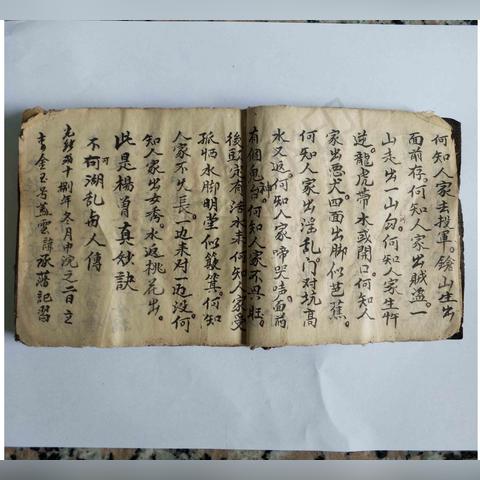 何知人家去投軍。鎗山生出
面前存。何知人家出賊盗。一
山走出一山勾。何知人家生忤
逆。龍虎帶水或開口。何知人
家出悪犬。四面出脚似芭蕉。
何知人家出淫乱。門对坑高
水又返。何知人家啼哭面前
有個何知人家不畏旺。
後定有活水来。何知人家受
孤恓。水脚明堂似簸箕。何知
人家不久長。一边来对一边没。何
知人家出女秀。水返桃花出。
此是楊首真妙訣
不可湖乱与人傳
光緒十捌年冬月中浣之二日立
金玉号蓋雲 承藩記習